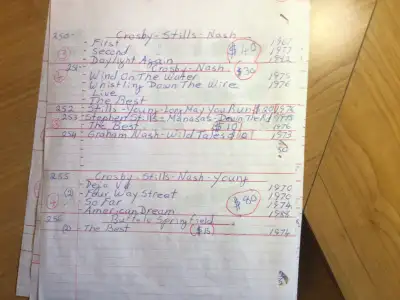 250 - Crosby - Stills - Nash
- First 1969
(3) - Second $40 1977
- Daylight Again 1982
251 - Crosby - Nash $30
- Wind On The Water 1975
(4) - Whistling Down The Wire 1976
- Live
- The Best
252 - Stills - Young - Long May You Run 1976
253 - Stephen Stills - Manassas - Down
- The Best $10 1976
254 - Graham Nash - Wild Tales $10 1973
255 Crosby - Stills - Nash - Young
- Deja Vu 1970
(2) - Four Way Street 1970
- So Far $40 1974
- American Dream 1988
256 Buffalo Springfield
(2) - The Best $15